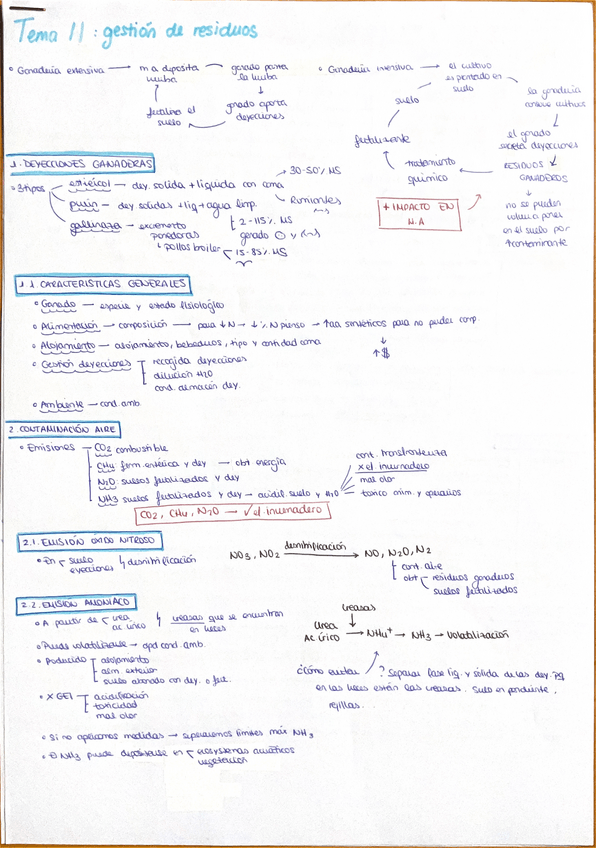 Tema 11: gestión de residuos
• Ganadería extensiva → m.a deposita → ganado pasta
hierba la hierba
fertiliza el suelo ganado aporta
deyecciones
• Ganadería intensiva → el cultivo
es pastado en
suelo
la ganadería
consume cultivos
suelo
el ganado
excreta deyecciones
fertilizante
RESIDUOS
GANADEROS
tratamiento
químico
no se pueden
volver a poner
en el suelo por
↑contaminante
+ IMPACTO EN
M.A
1. DEYECCIONES GANADERAS
• 3 tipos estiércol — dey. solida + liquida con cama 30-50% MS
Rumiantes
purin — dey. solidas + liq + agua limp.
2-115% MS
gallinaza — excremento ganado
ponedoras
↳ pollos broiler 15-85% MS
1.1. CARACTERISTICAS GENERALES
• Ganado — especie y estado fisiológico
• Alimentación — composición → para ↓N → ↓% N pienso → ↑aa sintéticos para no perder comp.
↓
↑$
• Alojamiento — alojamiento, bebederos, tipo y cantidad cama
• Gestión deyecciones recogida deyecciones
dilución H2O
cond. almacén dey.
• Ambiente — cond. amb.
2. CONTAMINACIÓN AIRE
• Emisiones — CO2 combustible
CH4 ferm. entérica y dey → obt energía
N2O suelos fertilizados y dey
NH3 suelos fertilizados y dey → acidif. suelo y H2O
cont. transfronteriza
x ef. invernadero
mal olor
toxico anim. y operarios
CO2, CH4, N2O → ✓ ef. invernadero
2.1. EMISIÓN OXIDO NITROSO
• En suelo
eyecciones ↳ desnitrificación
NO3, NO2 desnitrificación → NO, N2O, N2
cont. aire
obt residuos ganaderos
suelos fertilizados
2.2. EMISIÓN AMONIACO
• A partir de urea
ac úrico ↳ ureasas que se encuentran
en heces
ureasas
↓
Urea
Ac úrico → NH4+ → NH3 → Volatilización
• Puede volatilizarse → dpd cond. amb.
• Producido alojamiento
alm exterior
suelo abonado con dey. o fert.
¿Cómo evitar? Separar fase liq. y sólida de las dey. pq
en las heces están las ureasas. Suelo en pendiente,
rejillas...
• X GEI acidificación
toxicidad
mal olor
• Si no aplicamos medidas → superaremos límites máx NH3
• El NH3 puede depositarse en ecosistemas acuáticos
vegetación